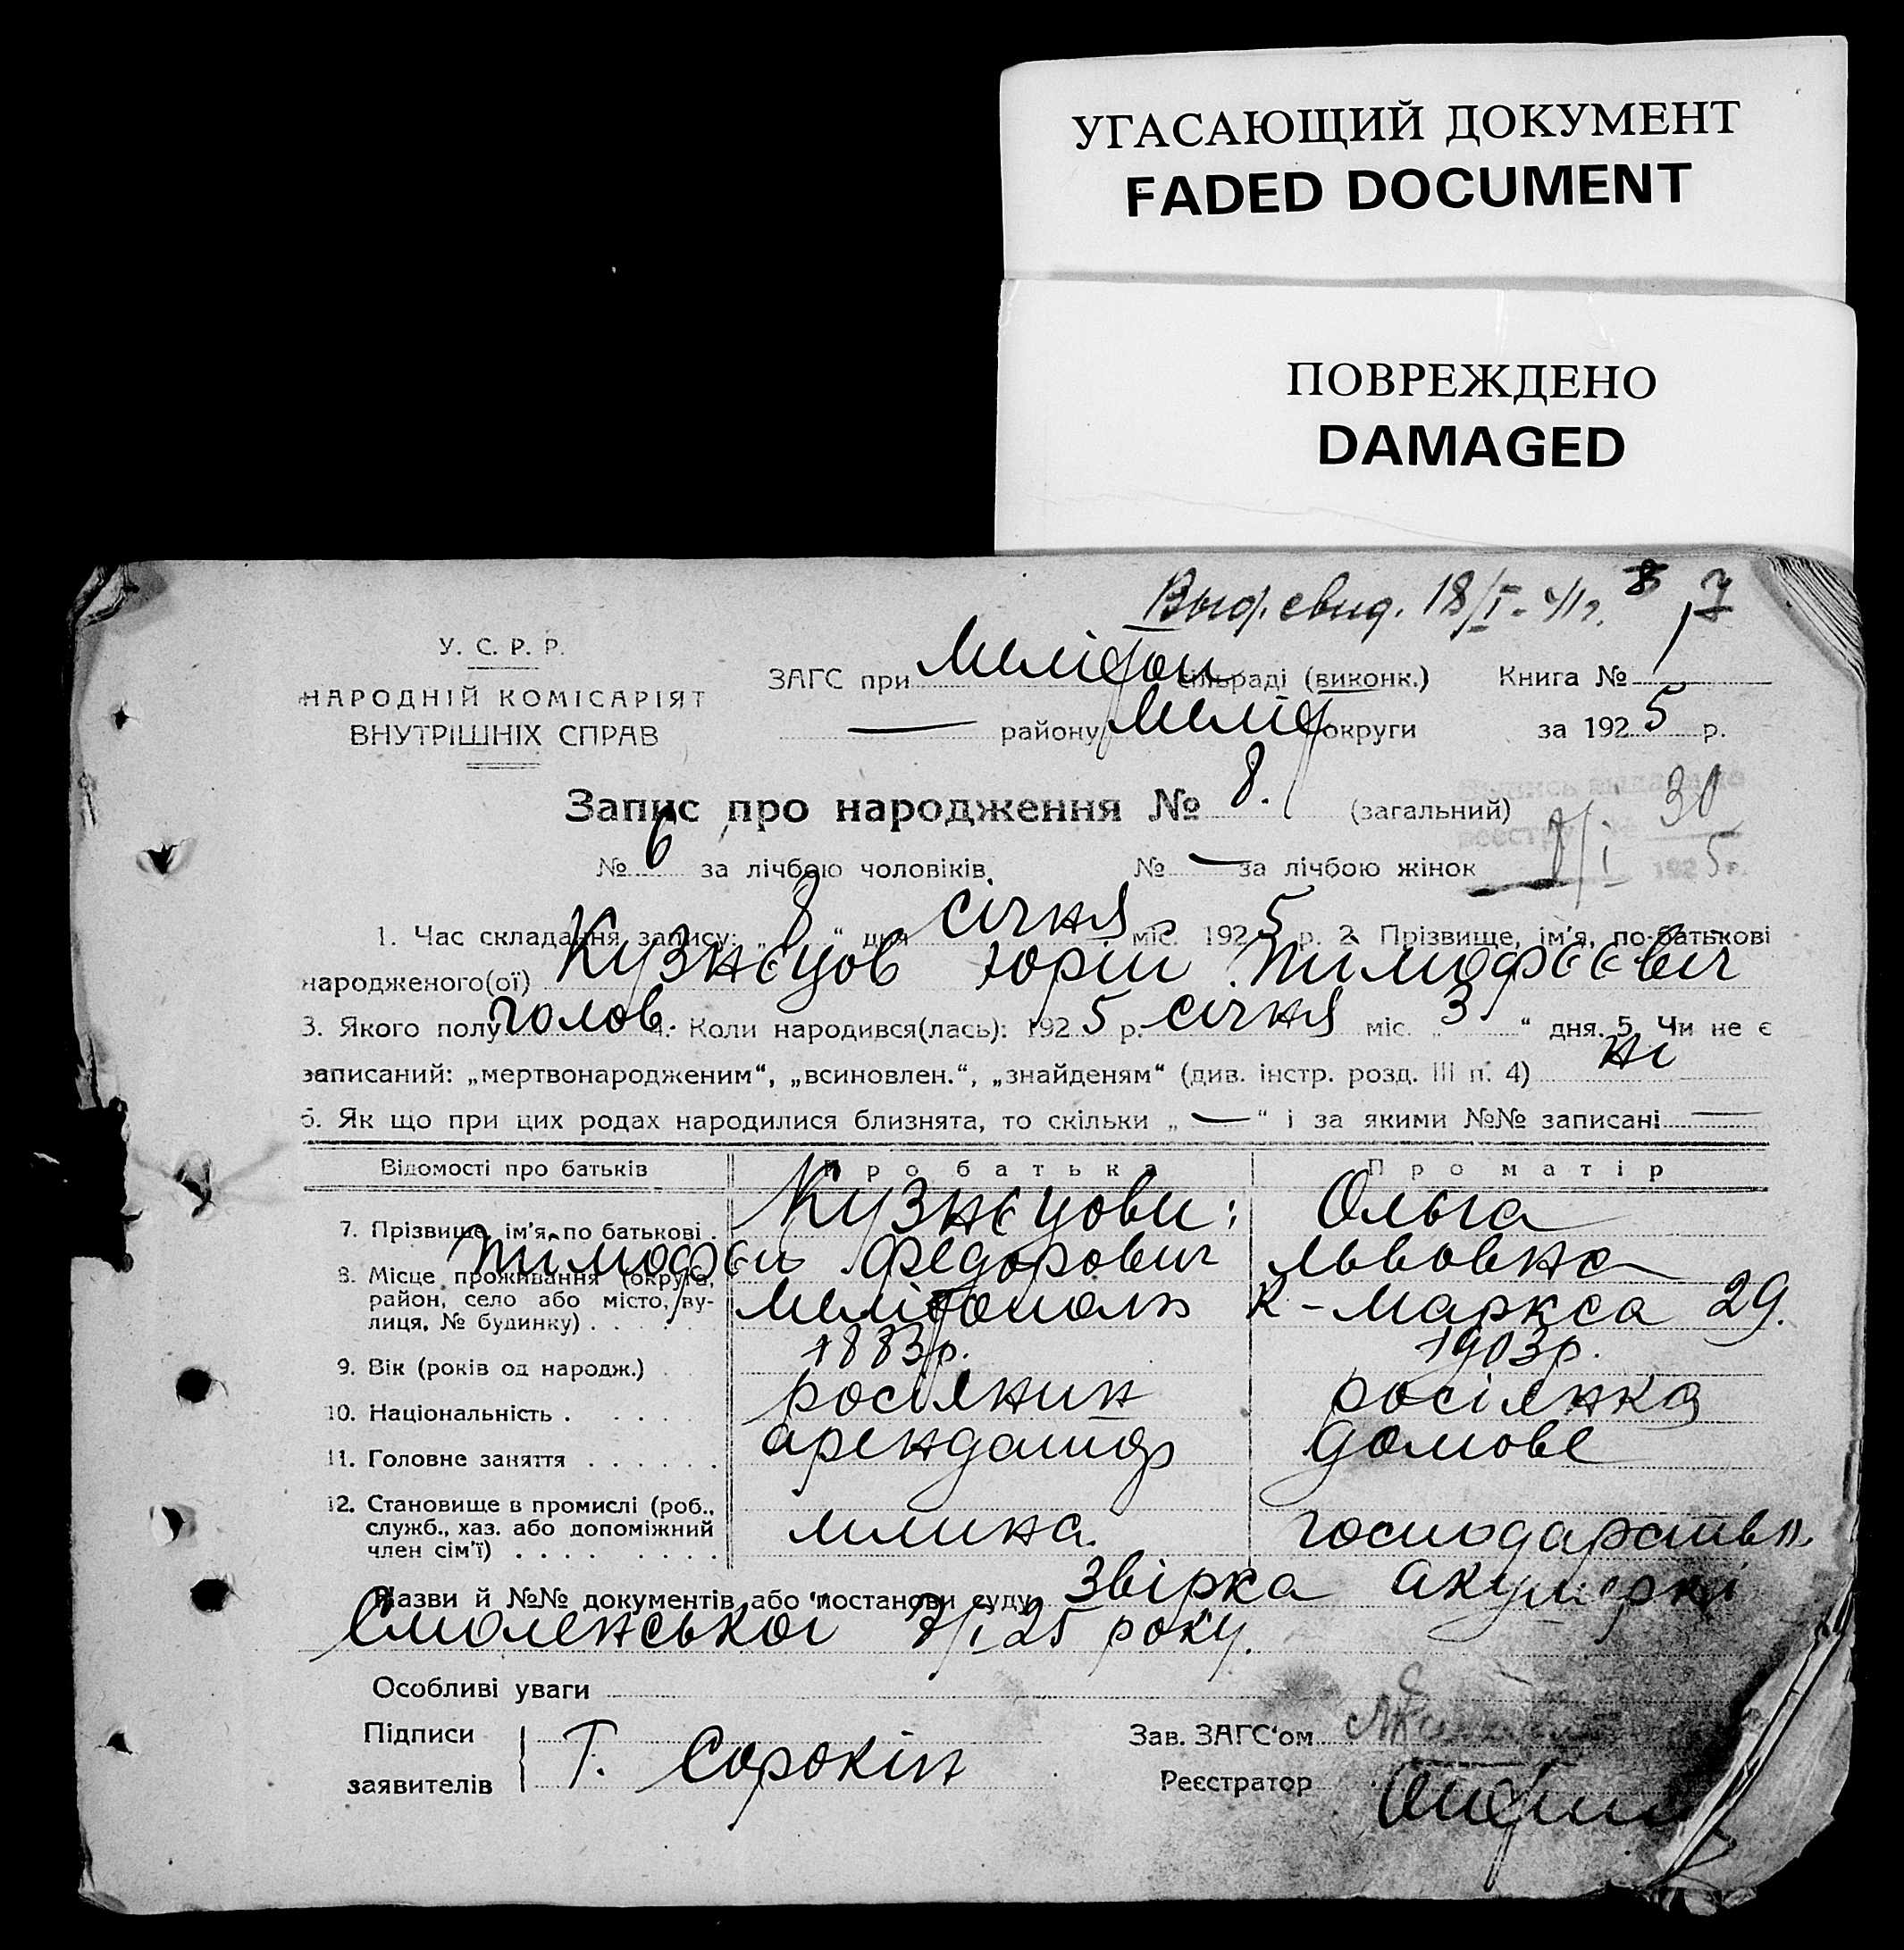 УГАСАЮЩИЙ ДОКУМЕНТ
FADED DOCUMENT
ПОВРЕЖДЕНО
DAMAGED
Выд. свид. 18/I-41г. 8 7
У. С. Р. Р.
НАРОДНІЙ КОМІСАРІЯТ
ВНУТРІШНІХ СПРАВ
ЗАГС при Мелітоп сільраді (виконк.) Книга № 1
— району Меліт округи за 1925 р.
Запис про народження № 8. (загальний)
30
№ 6 за лічбою чоловіків № — за лічбою жінок 8/I 1925 р.
1. Час складання запису: „8“ дня січня міс. 1925 р. 2. Прізвище, ім'я, по-батькові
народженого(ої) Кузнєцов Юрій Тимофєєвич
3. Якого полу чолов. 4. Коли народився(лась): 1925 р. січня міс. „3“ дня. 5. Чи не є
записаний: „мертвонародженим“, „всиновлен.“, „знайденям“ (див. інстр. розд. III п. 4) ні
6. Як що при цих родах народилися близнята, то скільки „—“ і за якими №№ записані —
Відомості про батьків Про батька Про матір
7. Прізвище, ім'я, по батькові . Кузнєцови: Ольга
Тимофєй Федорович Львовна
8. Місце проживання (округа,
район, село або місто, ву-
лиця, № будинку) . . . . Мелітополь К-Маркса 29.
9. Вік (років од народж.) 1883р. 1903р.
10. Національність . . . . росіянин росіянка
11. Головне заняття . . . . . . арендатор домове
12. Становище в промислі (роб.,
служб., хаз. або допоміжний
член сім'ї) . . . . . . . . млина. господарств.
Назви й №№ документів або постанови суду Звірка акушерки
Смоленської 7/I 25 року.
Особливі уваги
Підписи
заявителів Т. Сорокін
Зав. ЗАГС'ом
Реєстратор